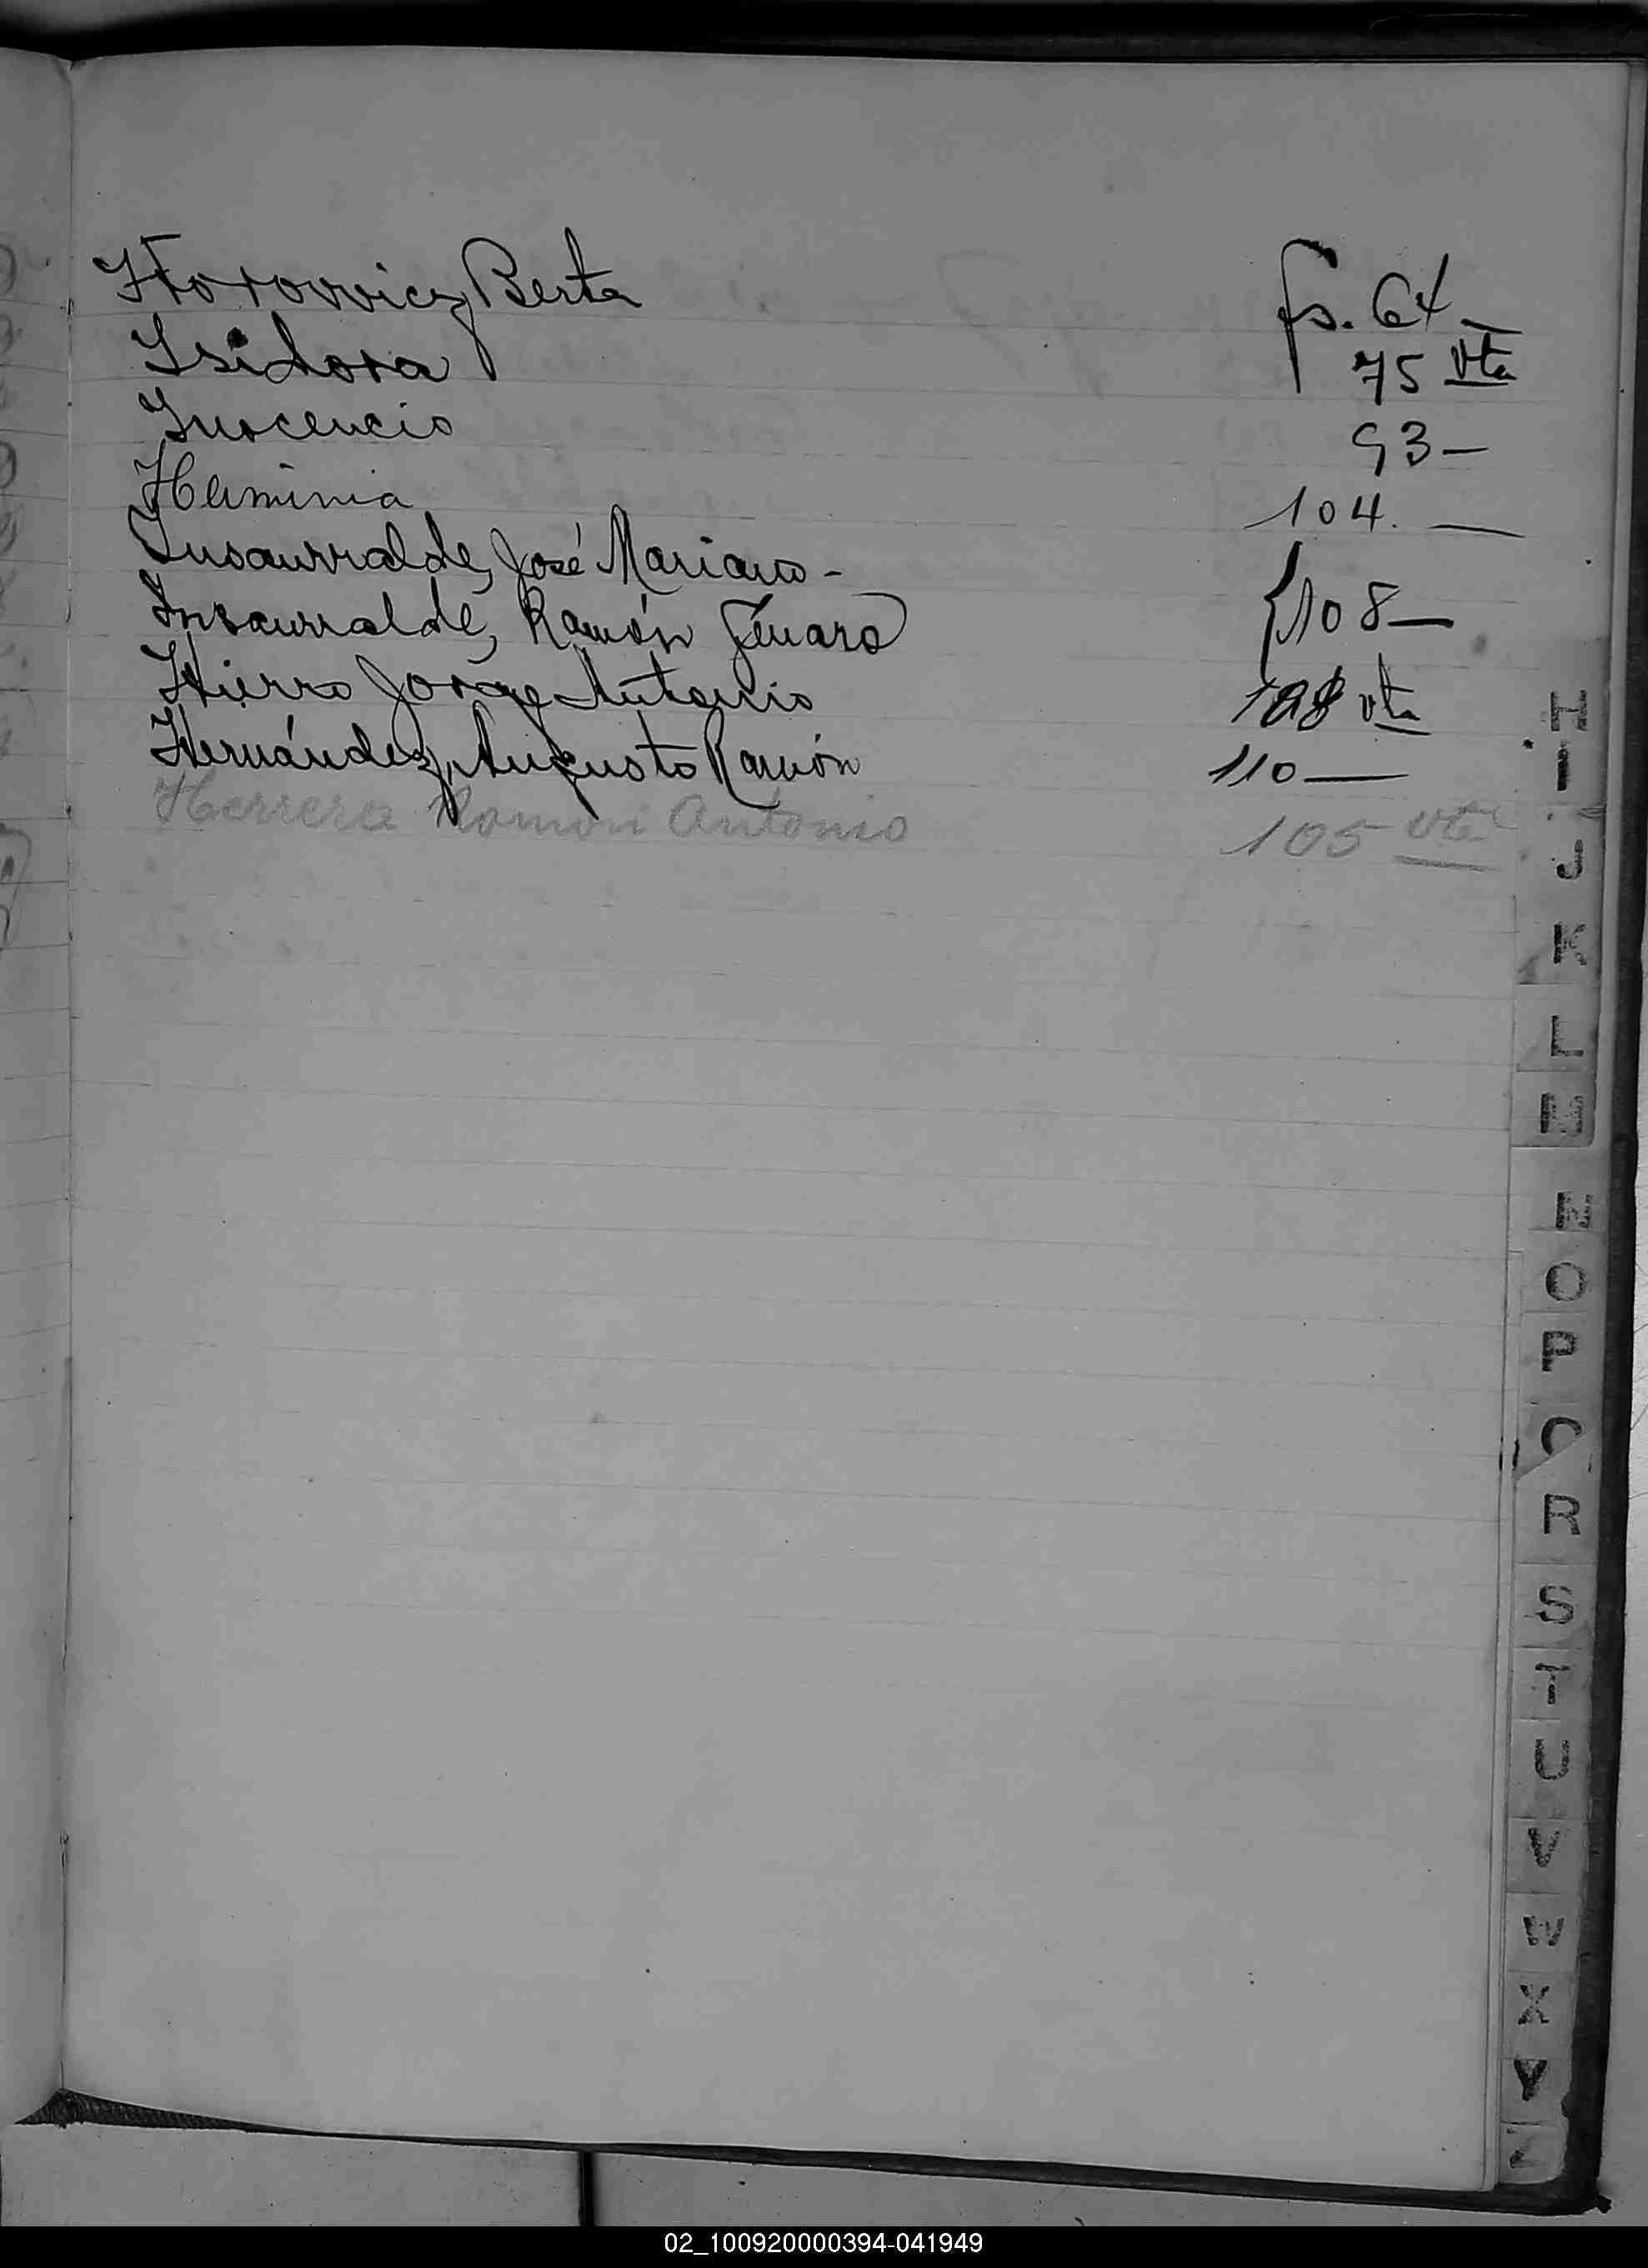 Horowicz Berta fs. 64 —
Isidora 75 vta
Inocencio 93 —
Herminia 104. —
Insaurralde, José Mariano - 108 —
Insaurralde, Ramón Jenaro
Hierro Jorge Antonio 108 vta
Hernández, Augusto Ramón 110 —
Herrera Ramón Antonio 105 vta
H
I
J
K
L
M
N
O
P
Q
R
S
T
U
V
W
X
Y
Z
02_100920000394-041949